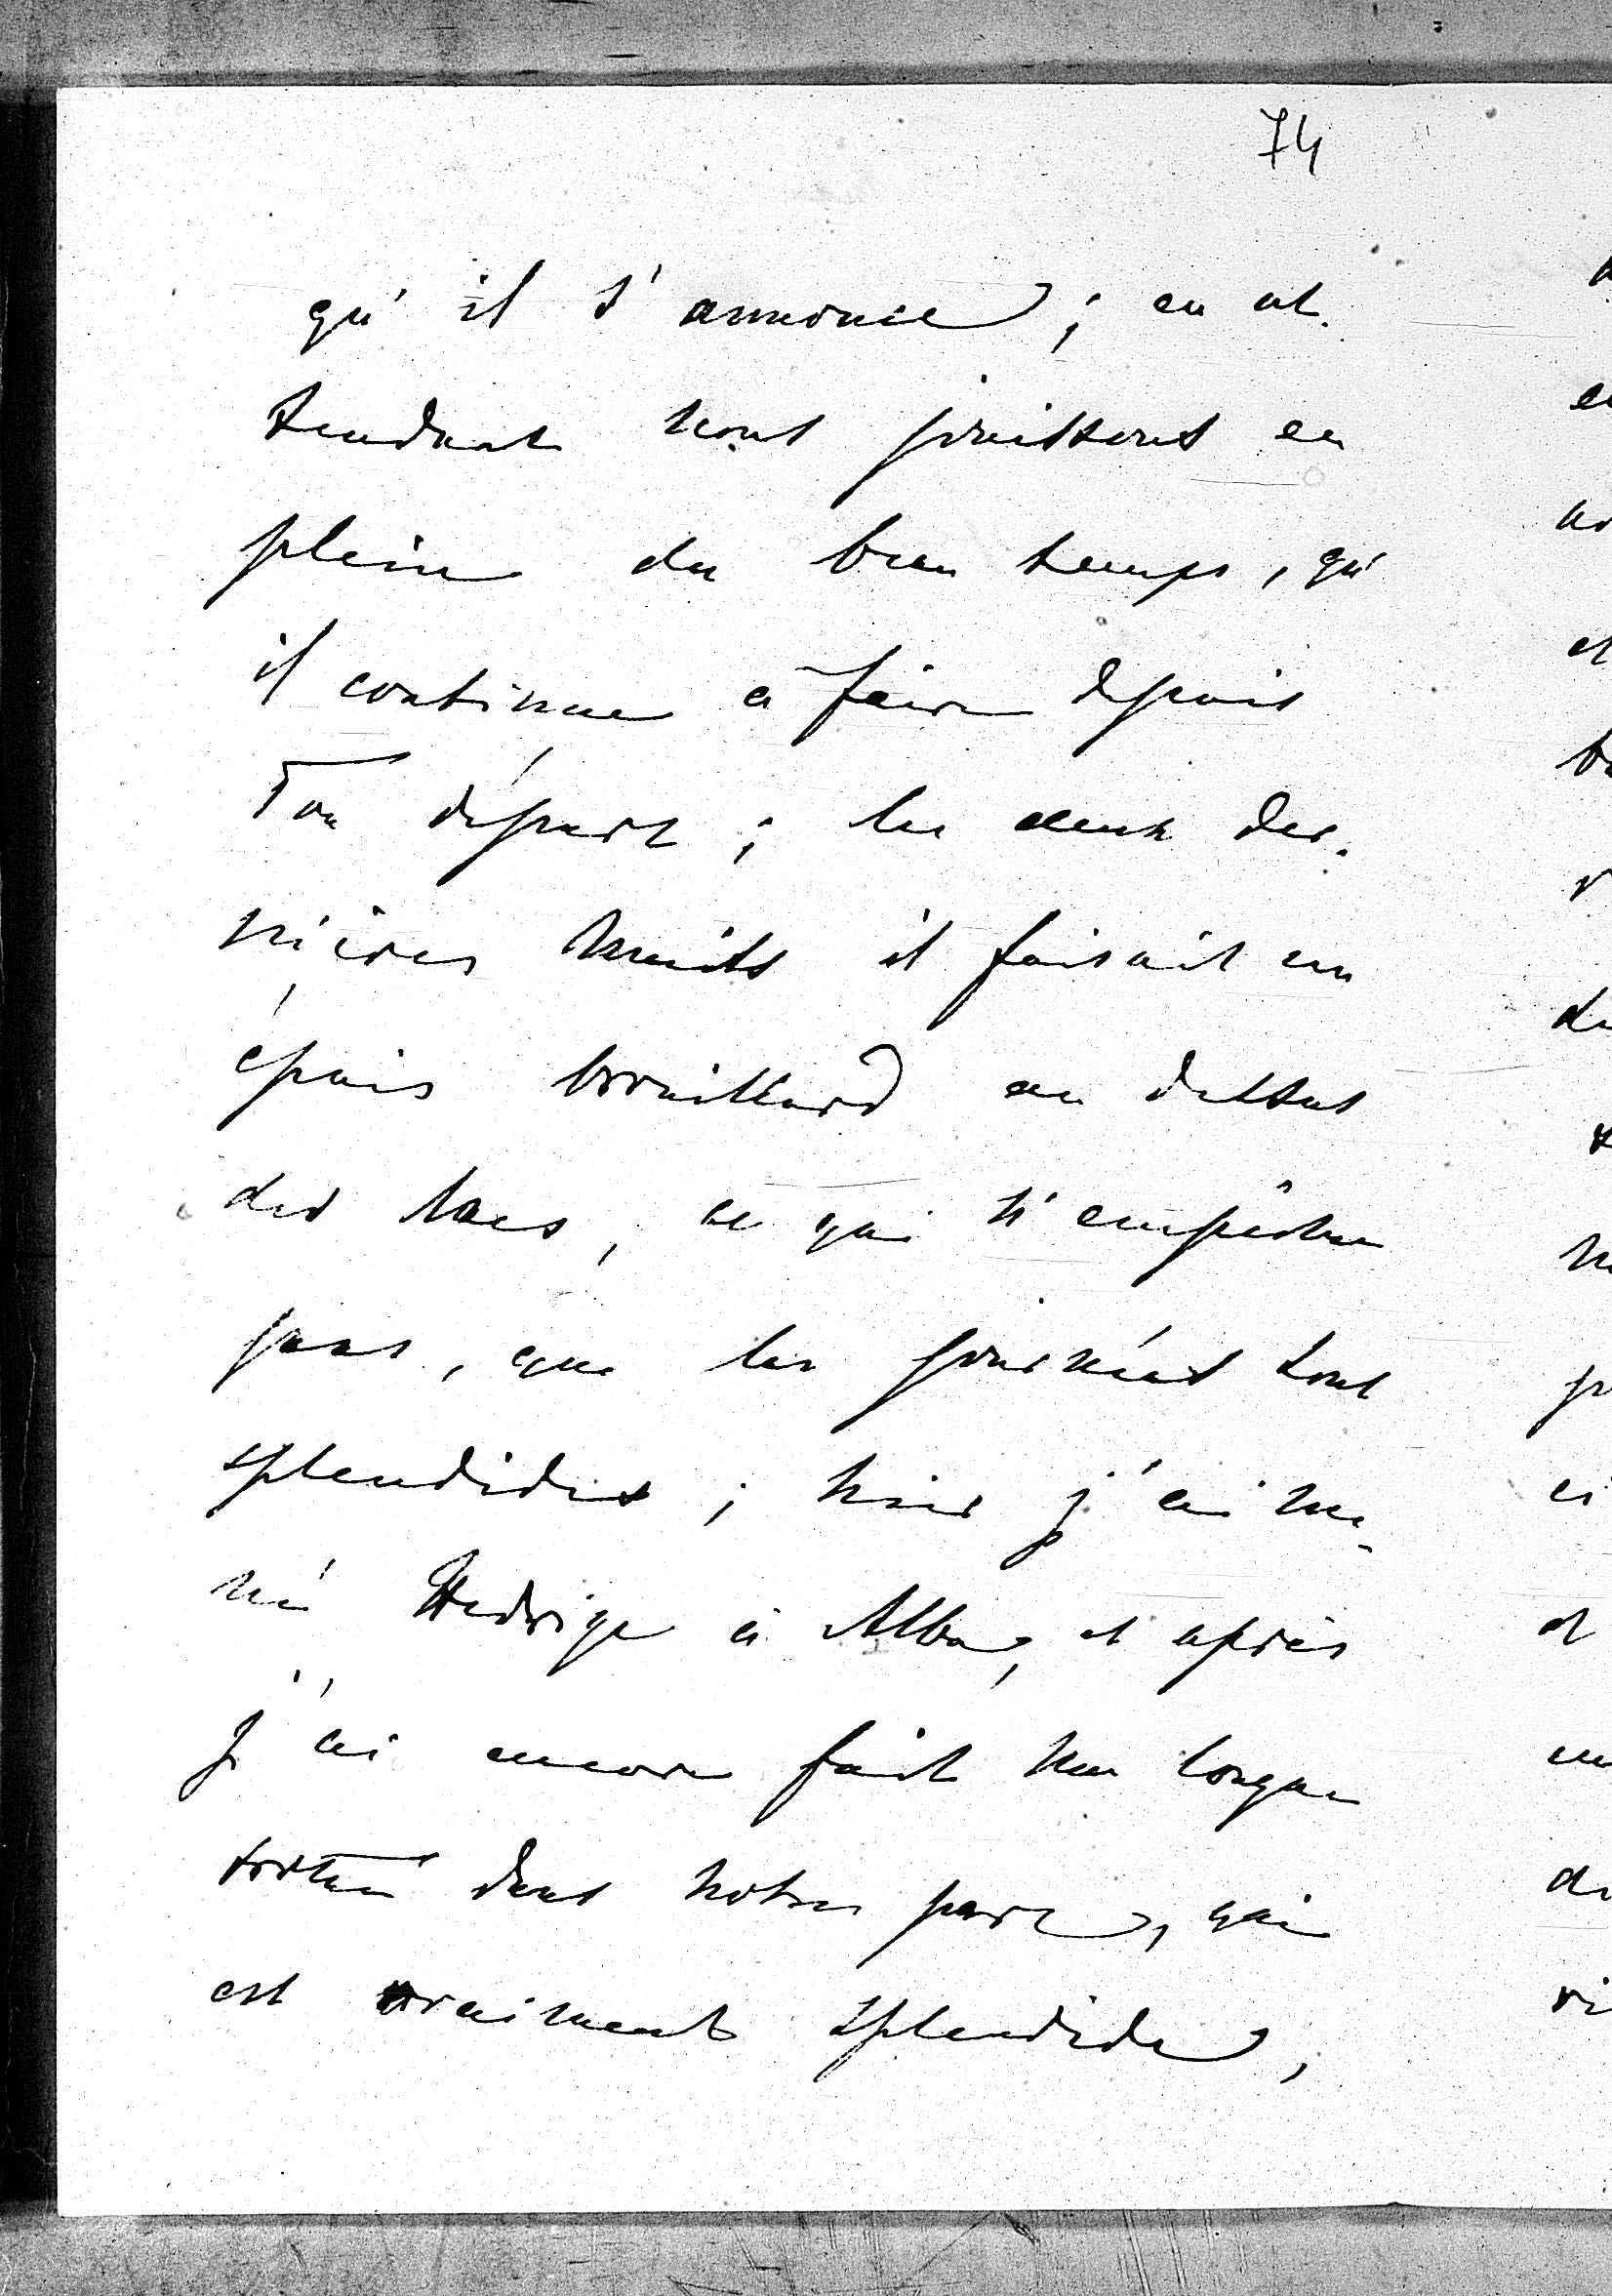 74
qu'il s'annonce; en at-
tendant nous jouissons en
plein du beau temps, qu'
il continue à faire depuis
Ton départ; les deux der-
nières nuits il faisait un
épais brouillard au dessus
des lacs, ce qui n'empêche
pas, que les journées sont
splendides; hier j'ai me-
né Hedwige à Alba, et après
j'ai encore fait une longue
dans notre parc, qui
est vraiment splendide,